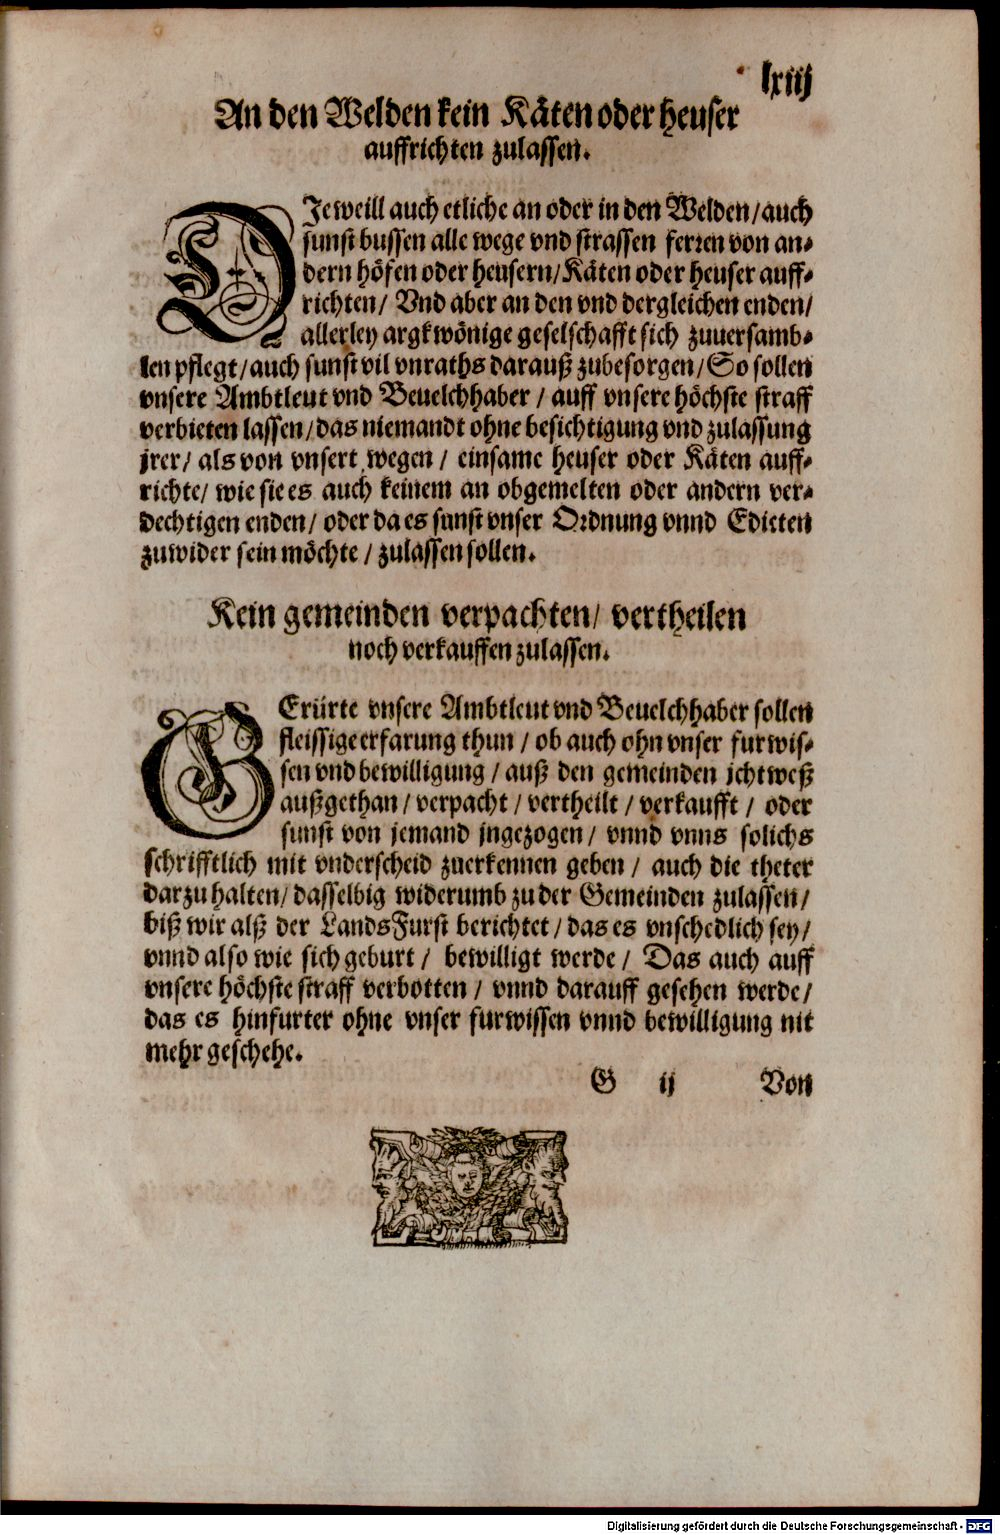 lxiij
An den Welden kein Käten oder heuser
auffrichten zulassen.
DJeweill auch etliche an oder in den Welden/auch
sunst bussen alle wege vnd strassen ferren von an-
dern höfen oder heusern/Käten oder heuser auff-
richten/ Vnd aber an den vnd dergleichen enden/
allerley argkwönige geselschafft sich zuuersamb-
len pflegt/auch sunst vil vnraths darauß zubesorgen/So sollen
vnsere Ambtleut vnd Beuelchhaber / auff vnsere höchste straff
verbieten lassen/das niemandt ohne besichtigung vnd zulassung
jrer/ als von vnsert wegen / einsame heuser oder Käten auff-
richte/ wie sie es auch keinem an obgemelten oder andern ver-
dechtigen enden/ oder da es sunst vnser Ordnung vnnd Edicten
zuwider sein möchte / zulassen sollen.
Kein gemeinden verpachten/ vertheilen
noch verkauffen zulassen.
GErürte vnsere Ambtleut vnd Beuelchhaber sollen
fleissige erfarung thun / ob auch ohn vnser furwis-
sen vnd bewilligung / auß den gemeinden jchtweß
außgethan / verpacht / vertheilt / verkaufft / oder
sunst von jemand jngezogen / vnnd vnns solichs
schrifftlich mit vnderscheid zuerkennen geben / auch die theter
darzu halten/ dasselbig widerumb zu der Gemeinden zulassen/
biß wir alß der LandsFurst berichtet / das es vnschedlich sey/
vnnd also wie sich geburt / bewilligt werde / Das auch auff
vnsere höchste straff verbotten / vnnd darauff gesehen werde/
das es hinfurter ohne vnser furwissen vnnd bewilligung nit
mehr geschehe.
G ij Von
Digitalisierung gefördert durch die Deutsche Forschungsgemeinschaft - DFG